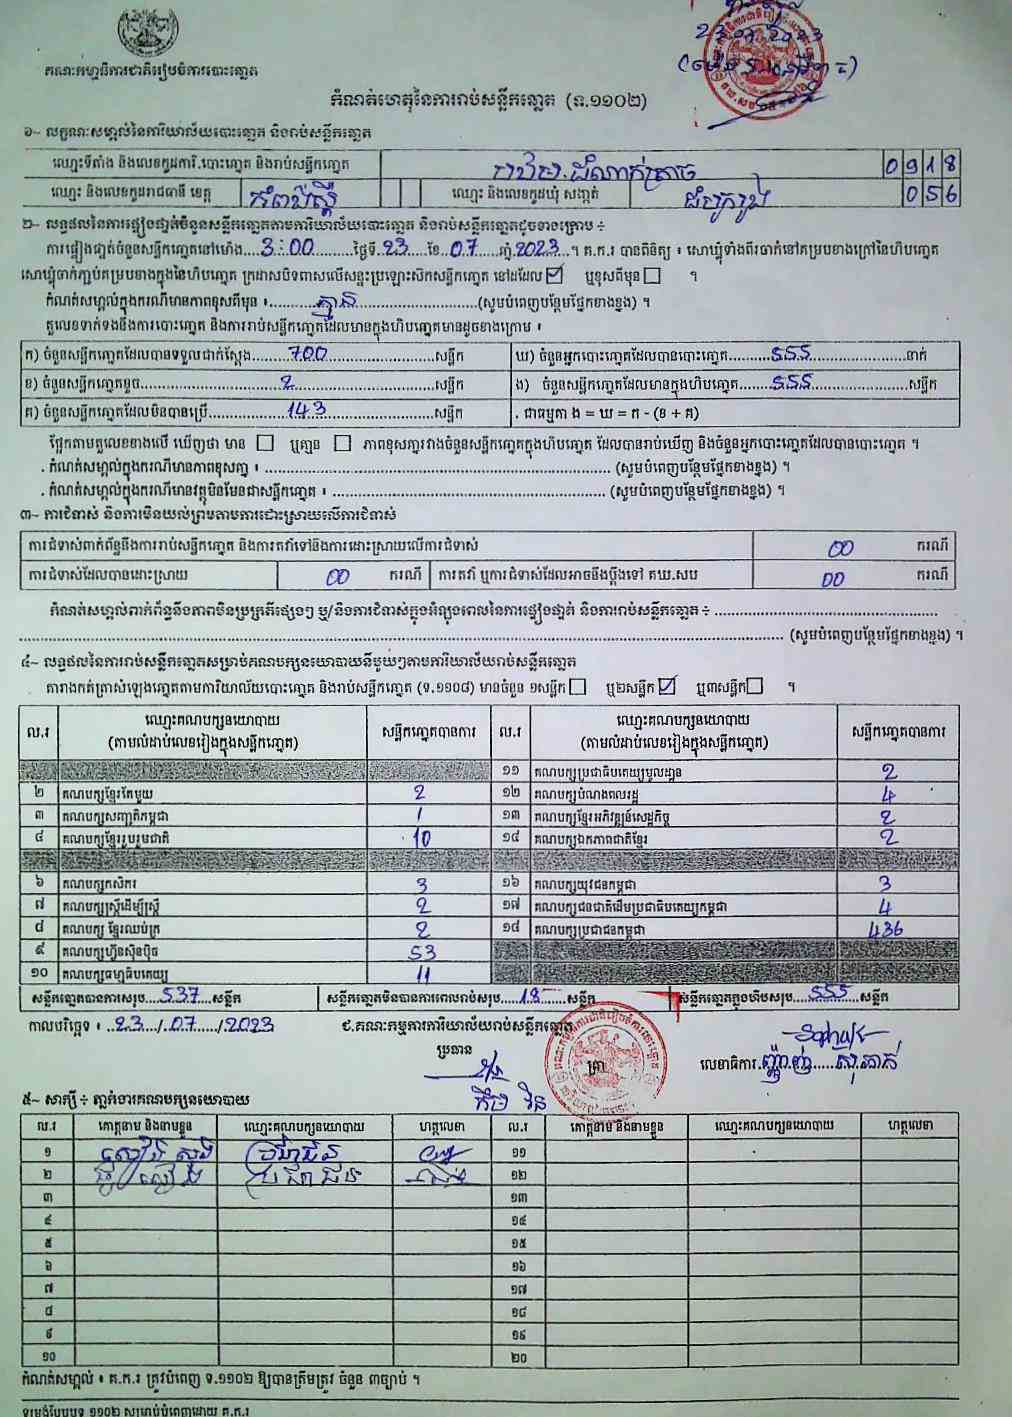 គណៈកម្មាធិការជាតិរៀបចំការបោះឆ្នោត
23.07.2023
កំណត់ហេតុនៃការរាប់សន្លឹកឆ្នោត (ទ.១១០២)
១~ លក្ខណៈសម្គាល់នៃការិយាល័យបោះឆ្នោត និងរាប់សន្លឹកឆ្នោត
ឈ្មោះទីតាំង និងលេខកូដការិ.បោះឆ្នោត និងរាប់សន្លឹកឆ្នោត 0918
ឈ្មោះ និងលេខកូដរាជធានី ខេត្ត ឈ្មោះ និងលេខកូដឃុំ សង្កាត់ 056
២~ លទ្ធផលនៃការផ្ទៀងផ្ទាត់ចំនួនសន្លឹកឆ្នោតតាមការិយាល័យបោះឆ្នោត និងរាប់សន្លឹកឆ្នោតដូចខាងក្រោម ៖
ការផ្ទៀងផ្ទាត់ចំនួនសន្លឹកឆ្នោតនៅម៉ោង...3:00...ថ្ងៃទី.23...ខែ.07...ឆ្នាំ.2023..។ គ.ក.រ បានពិនិត្យ ៖ សោឃ្លុំទាំងពីរចាក់នៅគម្របខាងក្រៅនៃហិបឆ្នោត
សោឃ្លុំចាក់ភ្ជាប់គម្របខាងក្នុងនៃហិបឆ្នោត ក្រដាសបិទពាសលើសន្ទះប្រឡោះសិកសន្លឹកឆ្នោត នៅដដែល ☑ ឬខុសពីមុន ☐ ។
កំណត់សម្គាល់ក្នុងករណីមានភាពខុសពីមុន ៖....គ្មាន....(សូមបំពេញបន្ថែមផ្នែកខាងខ្នង) ។
តួលេខទាក់ទងនឹងការបោះឆ្នោត និងការរាប់សន្លឹកឆ្នោតដែលមានក្នុងហិបឆ្នោតមានដូចខាងក្រោម ៖
ក) ចំនួនសន្លឹកឆ្នោតដែលបានទទួលជាក់ស្តែង....700....សន្លឹក ឃ) ចំនួនអ្នកបោះឆ្នោតដែលបានបោះឆ្នោត....555....នាក់
ខ) ចំនួនសន្លឹកឆ្នោតខូច....2....សន្លឹក ង) ចំនួនសន្លឹកឆ្នោតដែលមានក្នុងហិបឆ្នោត....555....សន្លឹក
គ) ចំនួនសន្លឹកឆ្នោតដែលមិនបានប្រើ....143....សន្លឹក . ជាធម្មតា ង = ឃ = ក - (ខ + គ)
ផ្អែកតាមតួលេខខាងលើ ឃើញថា មាន ☐ ឬគ្មាន ☐ ភាពខុសគ្នារវាងចំនួនសន្លឹកឆ្នោតក្នុងហិបឆ្នោត ដែលបានរាប់ឃើញ និងចំនួនអ្នកបោះឆ្នោតដែលបានបោះឆ្នោត ។
. កំណត់សម្គាល់ក្នុងករណីមានភាពខុសគ្នា ៖ .... (សូមបំពេញបន្ថែមផ្នែកខាងខ្នង) ។
. កំណត់សម្គាល់ក្នុងករណីមានវត្ថុមិនមែនជាសន្លឹកឆ្នោត ៖ .... (សូមបំពេញបន្ថែមផ្នែកខាងខ្នង) ។
៣~ ការជំទាស់ និងការមិនយល់ព្រមតាមការដោះស្រាយលើការជំទាស់
ការជំទាស់ពាក់ព័ន្ធនឹងការរាប់សន្លឹកឆ្នោត និងការតវ៉ាទៅនឹងការដោះស្រាយលើការជំទាស់ 00 ករណី
ការជំទាស់ដែលបានដោះស្រាយ 00 ករណី ការតវ៉ា ឬការជំទាស់ដែលអាចនឹងប្តឹងទៅ គឃ.សប 00 ករណី
កំណត់សម្គាល់ពាក់ព័ន្ធនឹងភាពមិនប្រក្រតីផ្សេងៗ ឬ/និងការជំទាស់ក្នុងអំឡុងពេលនៃការផ្ទៀងផ្ទាត់ និងការរាប់សន្លឹកឆ្នោត ៖ ....
.... (សូមបំពេញបន្ថែមផ្នែកខាងខ្នង) ។
៤~ លទ្ធផលនៃការរាប់សន្លឹកឆ្នោតសម្រាប់គណបក្សនយោបាយនីមួយៗតាមការិយាល័យរាប់សន្លឹកឆ្នោត
តារាងកត់ត្រាសំឡេងឆ្នោតតាមការិយាល័យបោះឆ្នោត និងរាប់សន្លឹកឆ្នោត (ទ.១១០៨) មានចំនួន ១សន្លឹក ☐ ឬ២សន្លឹក ☑ ឬ៣សន្លឹក ☐ ។
ល.រ ឈ្មោះគណបក្សនយោបាយ (តាមលំដាប់លេខរៀងក្នុងសន្លឹកឆ្នោត) សន្លឹកឆ្នោតបានការ ល.រ ឈ្មោះគណបក្សនយោបាយ (តាមលំដាប់លេខរៀងក្នុងសន្លឹកឆ្នោត) សន្លឹកឆ្នោតបានការ
១១ គណបក្សប្រជាធិបតេយ្យមូលដ្ឋាន 2
២ គណបក្សខ្មែរតែមួយ 2 ១២ គណបក្សបំណងពលរដ្ឋ 4
៣ គណបក្សសញ្ជាតិកម្ពុជា 1 ១៣ គណបក្សខ្មែរអភិវឌ្ឍន៍សេដ្ឋកិច្ច 2
៤ គណបក្សខ្មែររួបរួមជាតិ 10 ១៤ គណបក្សឯកភាពជាតិខ្មែរ 2
៦ គណបក្សកសិករ 3 ១៦ គណបក្សយុវជនកម្ពុជា 3
៧ គណបក្សស្ត្រីដើម្បីស្ត្រី 2 ១៧ គណបក្សជនជាតិដើមប្រជាធិបតេយ្យកម្ពុជា 4
៨ គណបក្ស ខ្មែរឈប់ក្រ 2 ១៨ គណបក្សប្រជាជនកម្ពុជា 436
៩ គណបក្សហ៊្វុនស៊ិនប៉ិច 53
១០ គណបក្សធម្មាធិបតេយ្យ 11
សន្លឹកឆ្នោតបានការសរុប....537....សន្លឹក សន្លឹកឆ្នោតមិនបានការពេលរាប់សរុប....18....សន្លឹក សន្លឹកឆ្នោតក្នុងហិបសរុប....555....សន្លឹក
កាលបរិច្ឆេទ ៖ ..23.../.07...../2023 ជ.គណៈកម្មការការិយាល័យរាប់សន្លឹកឆ្នោត
ប្រធាន ត្រា លេខាធិការ
៥~ សាក្សី ៖ ភ្នាក់ងារគណបក្សនយោបាយ
ល.រ គោត្តនាម និងនាមខ្លួន ឈ្មោះគណបក្សនយោបាយ ហត្ថលេខា ល.រ គោត្តនាម និងនាមខ្លួន ឈ្មោះគណបក្សនយោបាយ ហត្ថលេខា
១ ប្រជាជន ១១
២ ប្រជាជន ១២
៣ ១៣
៤ ១៤
៥ ១៥
៦ ១៦
៧ ១៧
៨ ១៨
៩ ១៩
១០ ២០
កំណត់សម្គាល់ ៖ គ.ក.រ ត្រូវបំពេញ ទ.១១០២ ឱ្យបានត្រឹមត្រូវ ចំនួន ៣ច្បាប់ ។
ទម្រង់បែបបទ ១១០២ សម្រាប់បំពេញដោយ គ.ក.រ